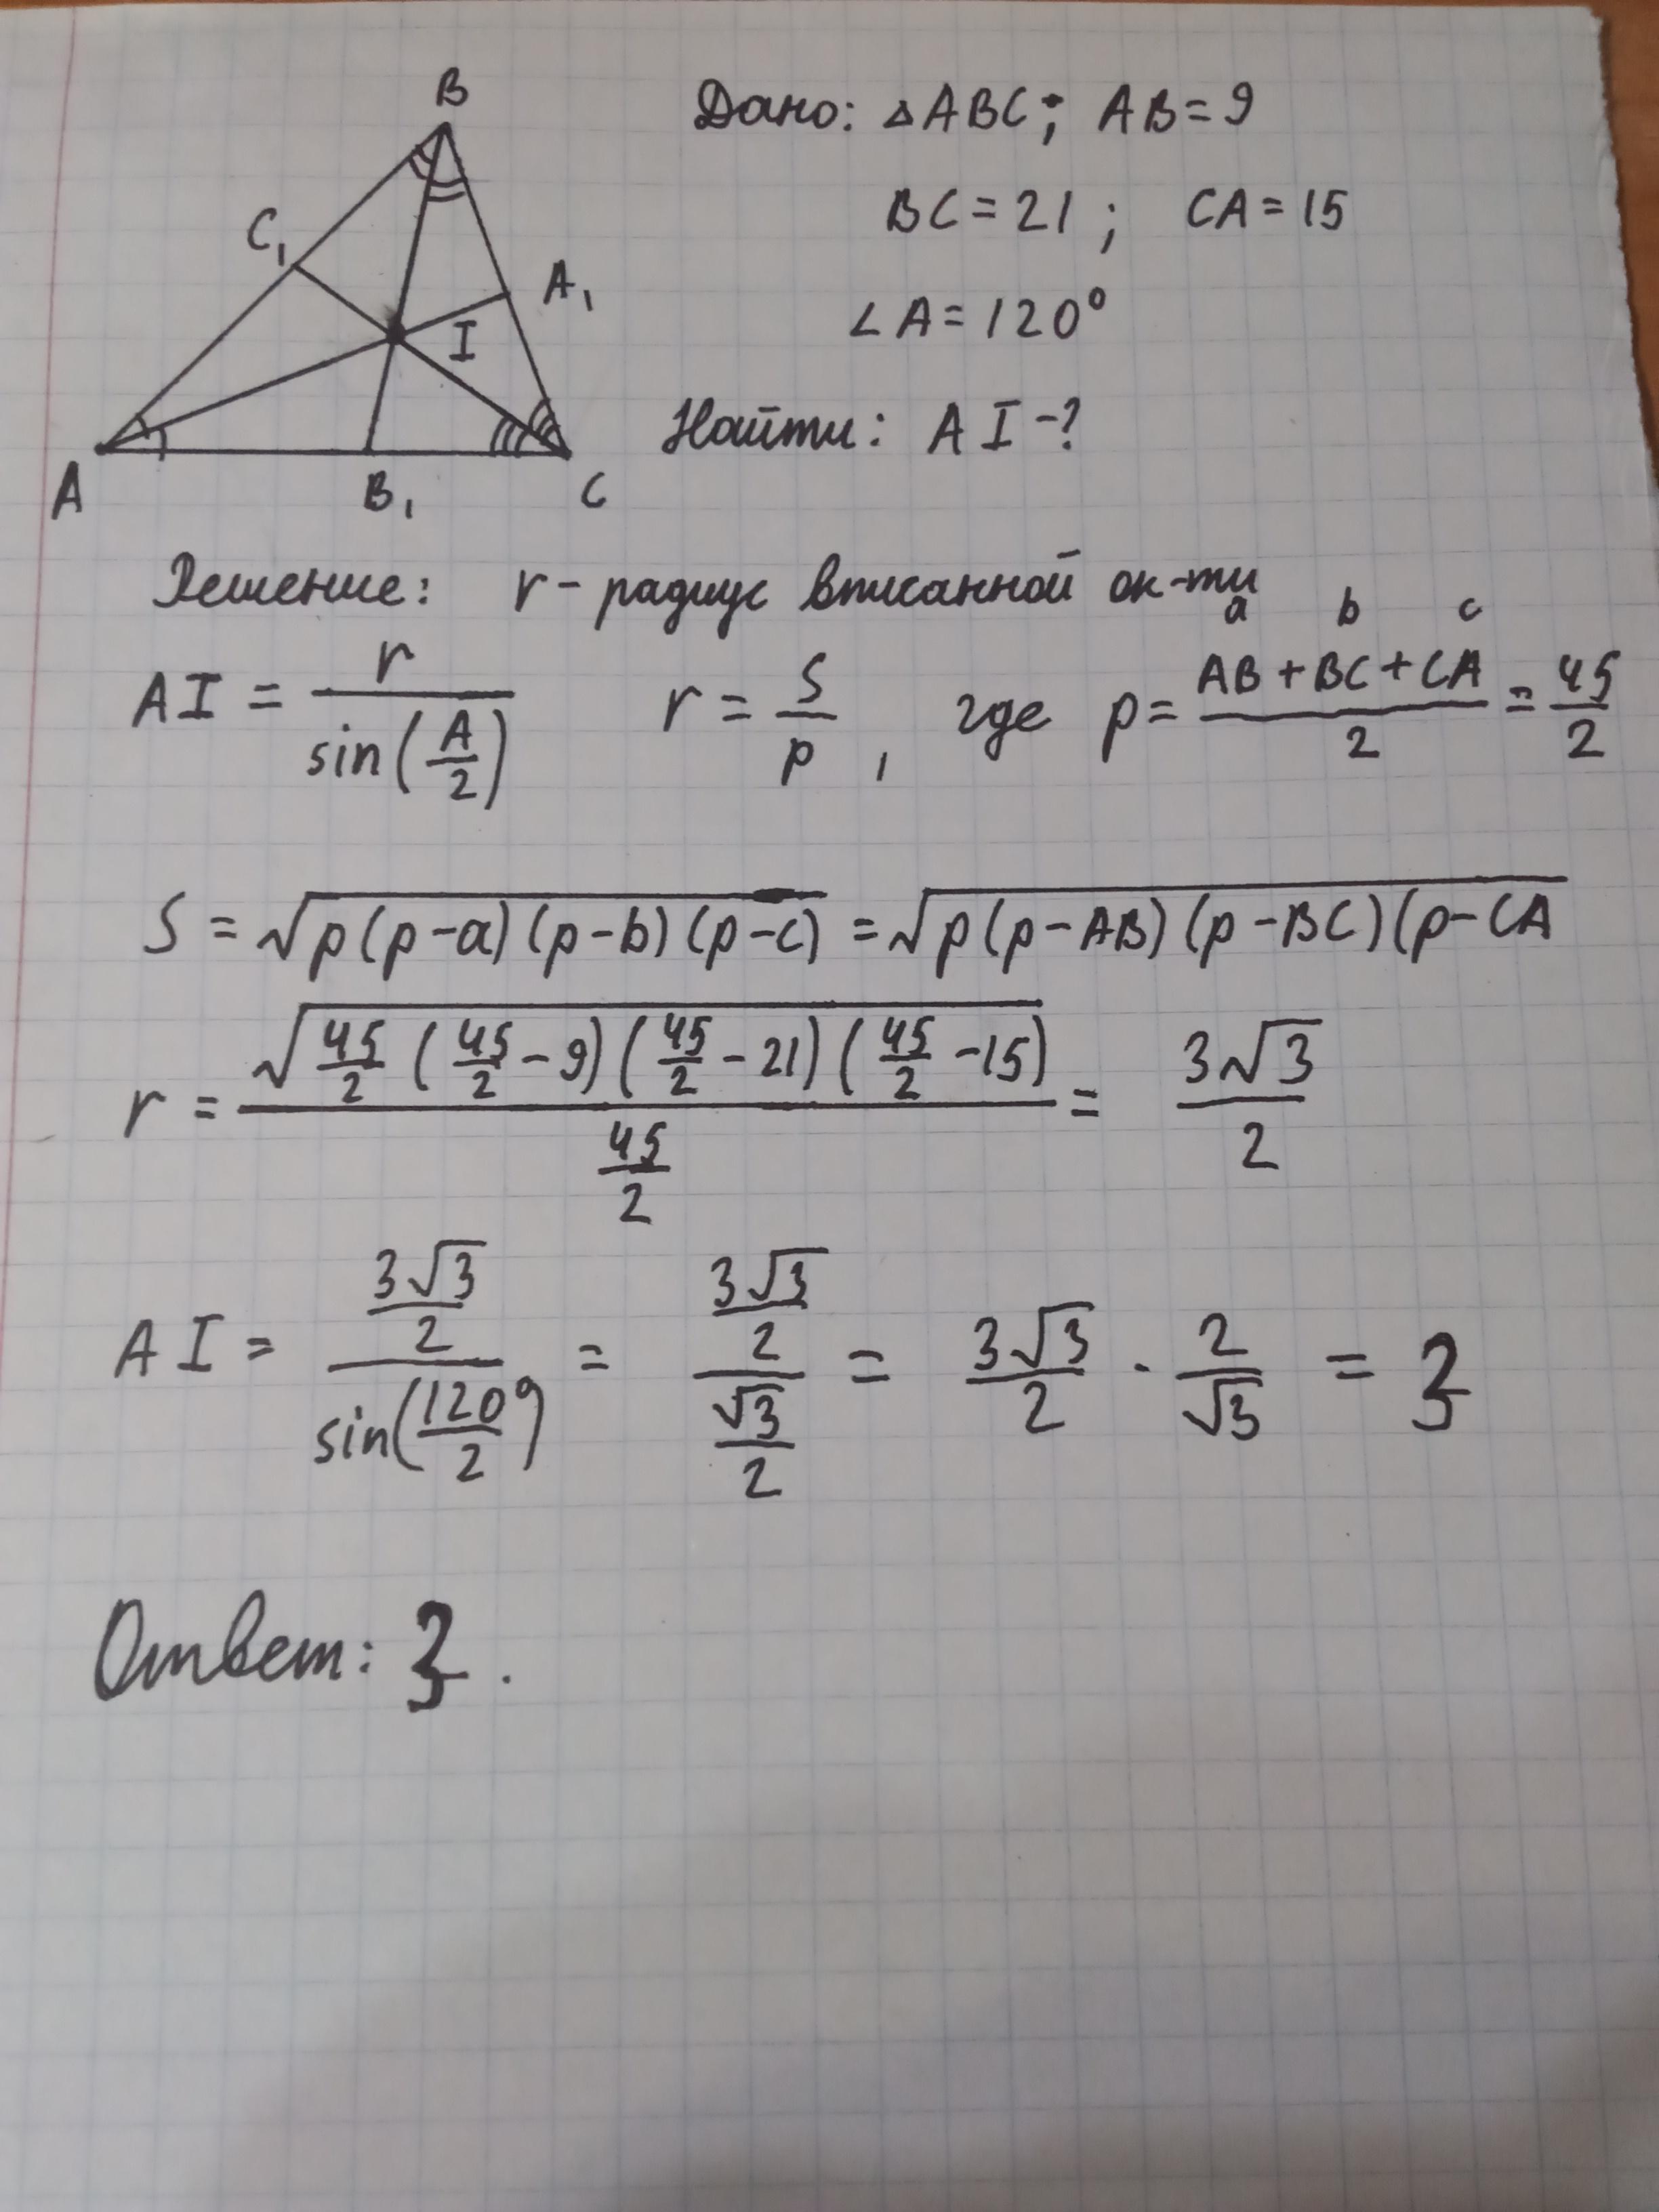 B
C₁
A₁
I
A
B₁
C
Дано: △ABC; AB = 9
BC = 21 ; CA = 15
∠A = 120°
Найти: AI -?
Решение: r - радиус вписанной ок-ти
a b c
AI = r / sin(A/2) r = S/p , где p = (AB + BC + CA)/2 = 45/2
S = √p(p-a)(p-b)(p-c) = √p(p-AB)(p-BC)(p-CA
r = √(45/2 (45/2 - 9)(45/2 - 21)(45/2 - 15)) / (45/2) = 3√3/2
AI = (3√3/2) / sin(120°/2) = (3√3/2) / (√3/2) = 3√3/2 · 2/√3 = 3
Ответ: 3 .